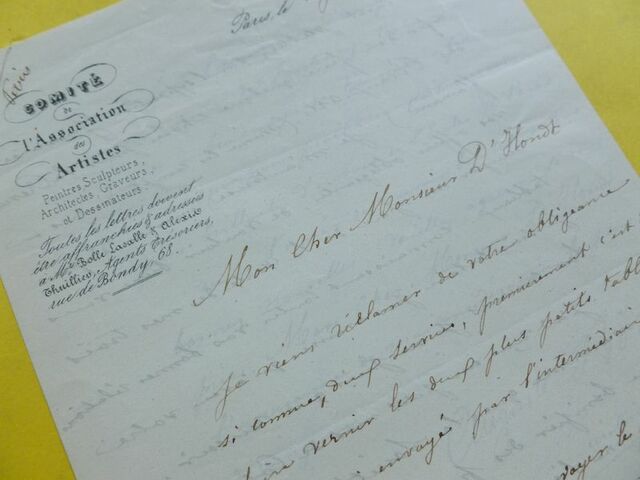 Paris, le
COMITÉ
de
l'Association
des
Artistes
Peintres, Sculpteurs,
Architectes, Graveurs,
et Dessinateurs.
Toutes les lettres doivent
être affranchies & adressées
à Mrs Bolle Lasalle & Alexis
Thuillier, Agents Trésoriers,
rue de Bondy, 68.
Mon Cher Monsieur D'Hondt
Je viens réclamer de votre obligeance
si connue, deux services, premièrement c'est
vernir les deux plus petits tabl
envoyé par l'intermédiaire
voyer le